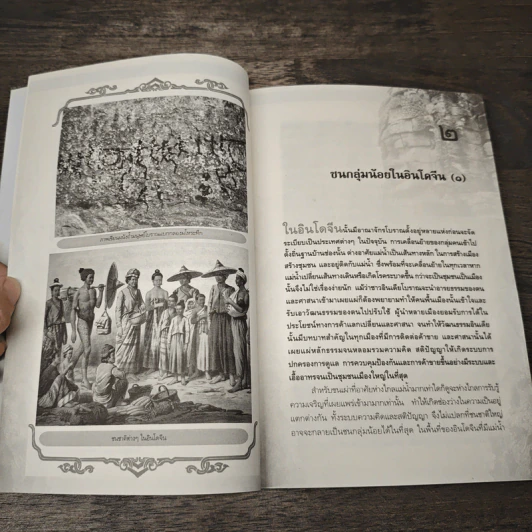 ชนชาติต่างๆ ในอินโดจีน
๒
ชนกลุ่มน้อยในอินโดจีน (๑)
ในอินโดจีนนั้นมีอาณาจักรโบราณตั้งอยู่หลายแห่งก่อนจะจัด
ระเบียบเป็นประเทศต่างๆ ในปัจจุบัน การเคลื่อนย้ายของกลุ่มคนเข้าไป
ตั้งถิ่นฐานบ้านช่องนั้น ต่างอาศัยแม่น้ำเป็นเส้นทางหลัก ในการสร้างเมือง
สร้างชุมชน และอยู่ติดกับแม่น้ำ ซึ่งพร้อมที่จะเคลื่อนย้ายในทุกเวลาหาก
แม่น้ำเปลี่ยนเส้นทางเดินหรือเกิดโรคระบาดขึ้น กว่าจะเป็นชุมชนเป็นเมือง
นั้นจึงไม่ใช่เรื่องง่ายนัก แม้ว่าชาวอินเดียโบราณจะนำอารยธรรมของตน
และศาสนาเข้ามาเผยแผ่ก็ต้องพยายามทำให้คนพื้นเมืองนั้นเข้าใจและ
รับเอาวัฒนธรรมของตนไปปรับใช้ ผู้นำหลายเมืองยอมรับการได้
ประโยชน์ทางการค้าแลกเปลี่ยนและศาสนา จนทำให้วัฒนธรรมอินเดีย
นั้นมีบทบาทสำคัญในทุกเมืองที่มีการติดต่อค้าขาย และศาสนานั้นได้
เผยแผ่หลักธรรมจนหลอมรวมความคิด สติปัญญา จึงทำให้เกิดระบบการ
ปกครองการดูแล การควบคุมป้องกันและการค้าขายขึ้นอย่างมีระบบและ
เอื้ออาทรจนเป็นชุมชนเมืองใหญ่ในที่สุด
สำหรับชนเผ่าที่อาศัยห่างไกลแม่น้ำมากเท่าใดก็ดูจะห่างไกลการรับรู้
ความเจริญที่เผยแพร่เข้ามามากเท่านั้น ทำให้เกิดช่องว่างในความเป็นอยู่
แตกต่างกัน ทั้งระบบความคิดและสติปัญญา จึงไม่แปลกที่ชนชาติใหญ่
อาจจะกลายเป็นชนกลุ่มน้อยได้ในที่สุด ในพื้นที่ของอินโดจีนที่มีแม่น้ำ